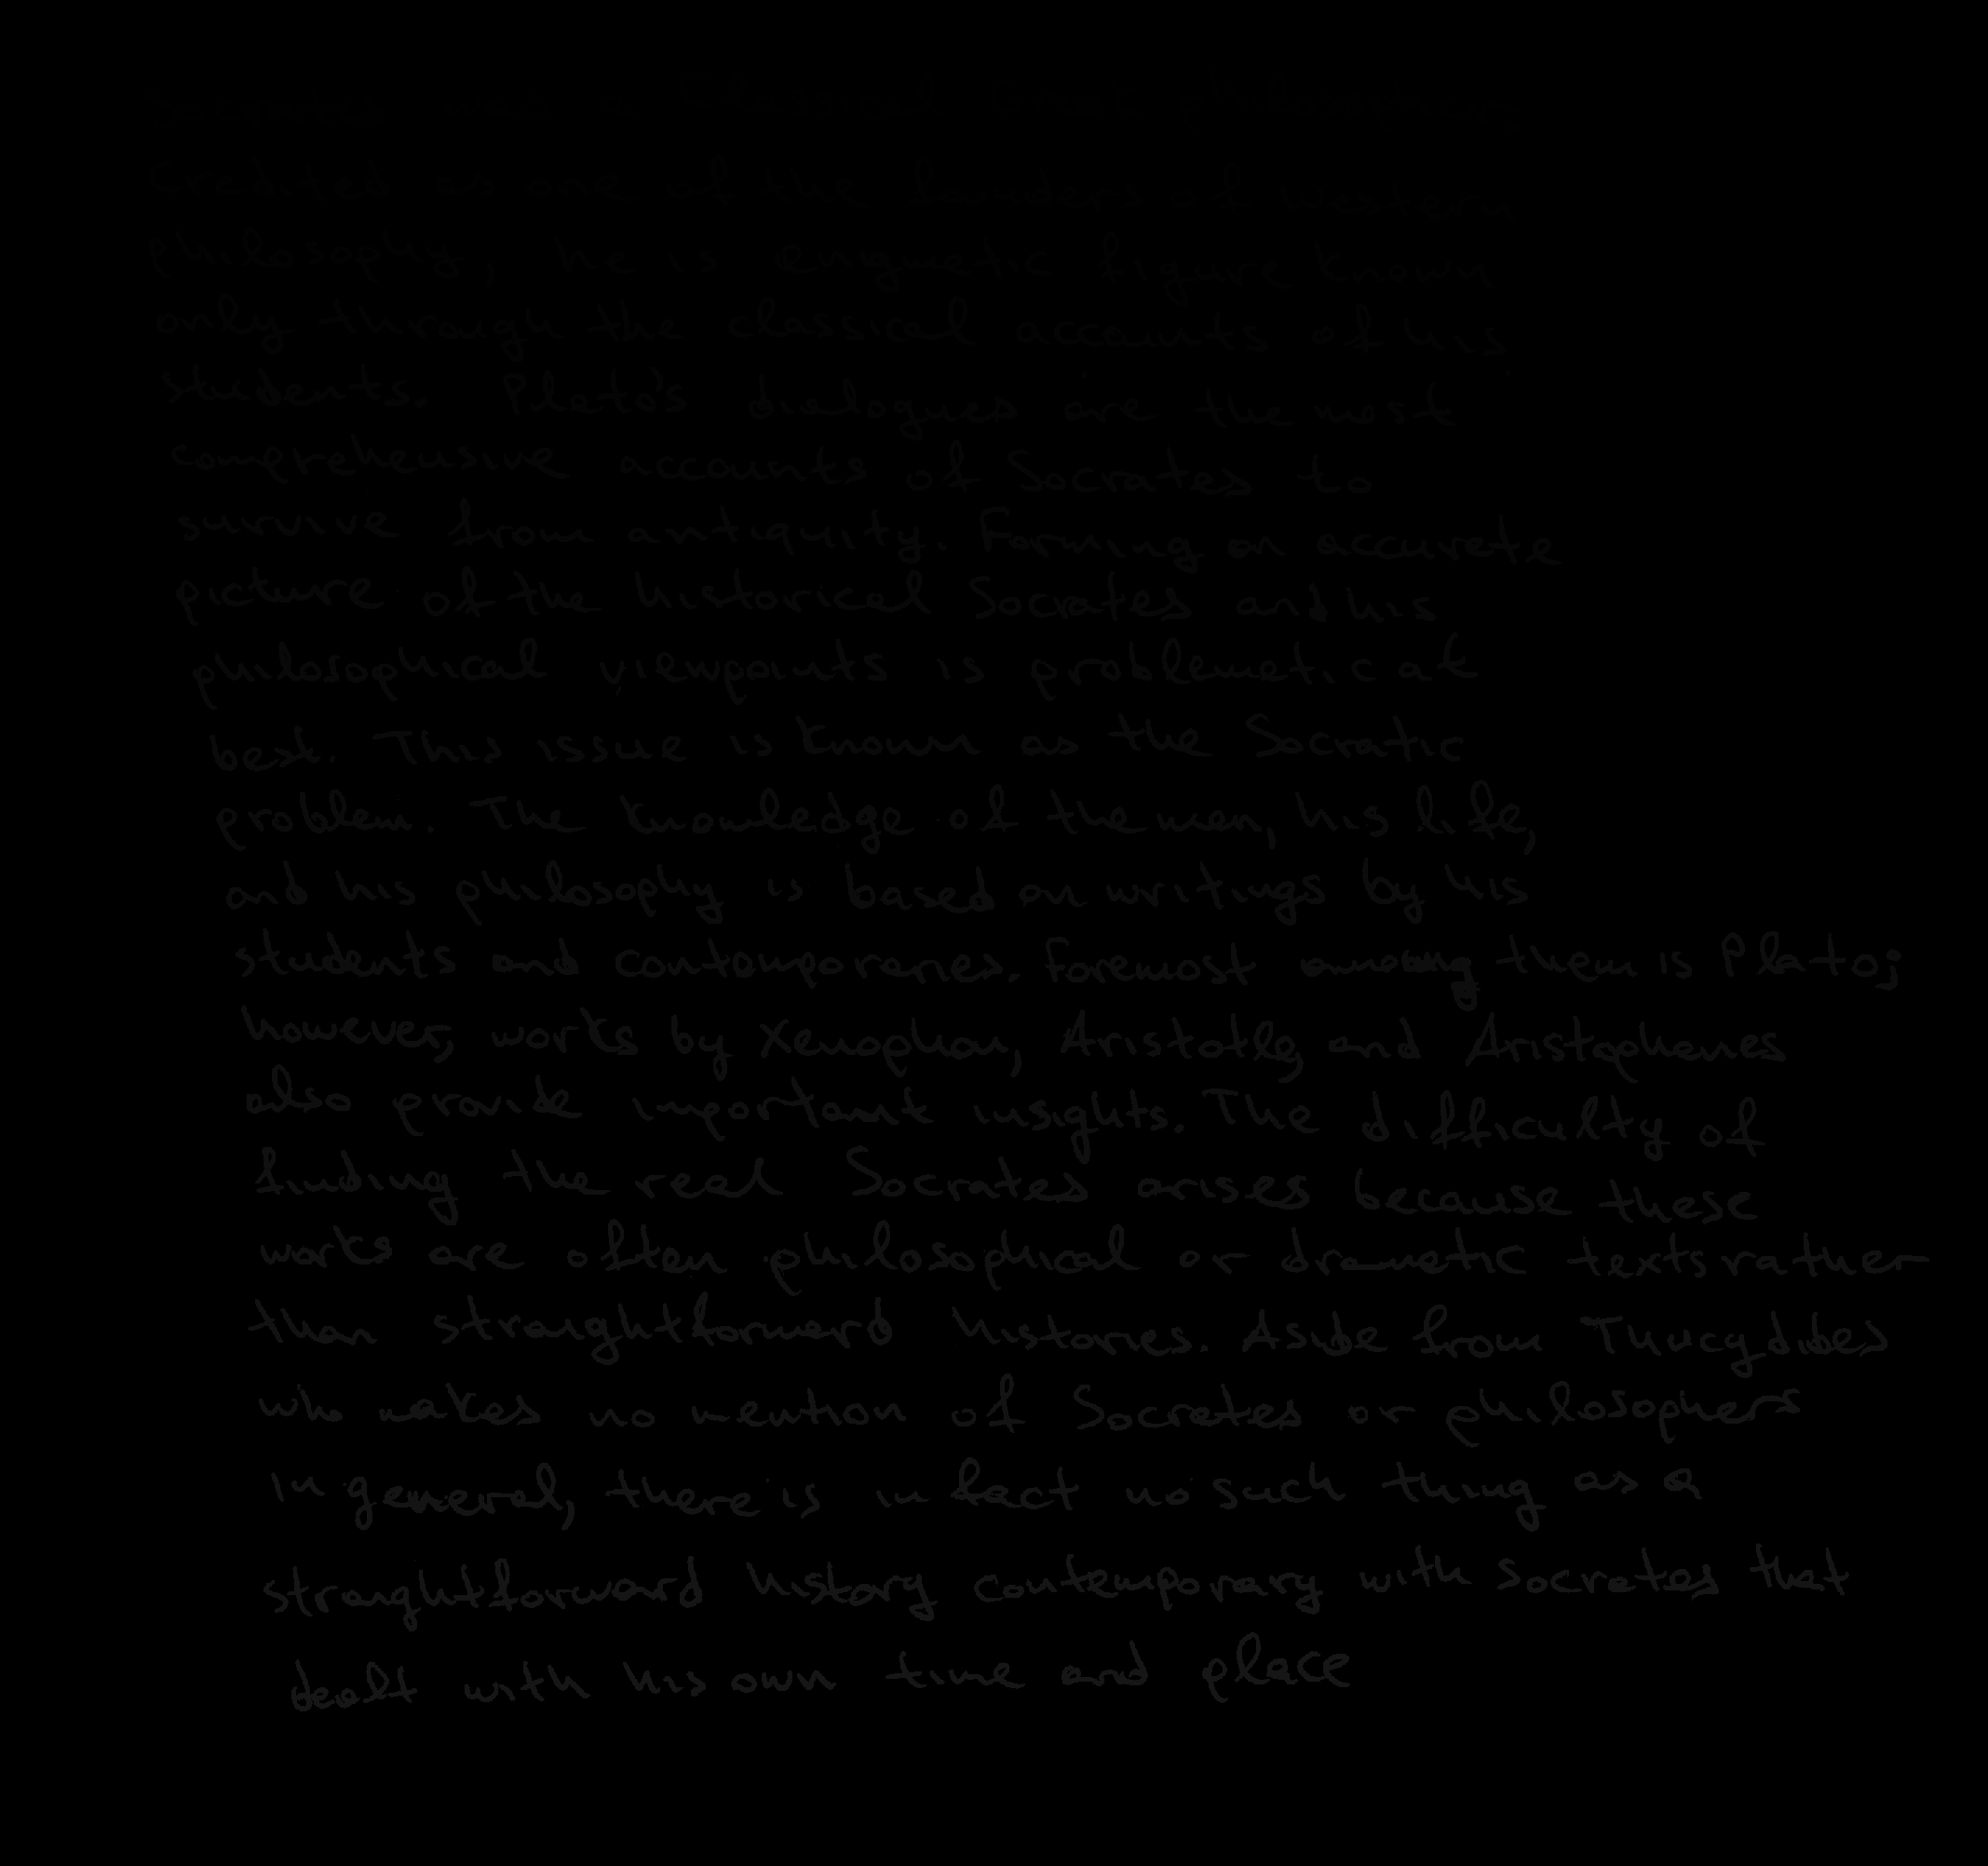 Credited as one of the founders of Western
philosophy, he is enigmatic figure known
only through the classical accounts of his
students. Plato's dialogues are the most
comprehensive accounts of Socrates to
survive from antiquity. Forming an accurate
picture of the historical Socrates and his
philosophical viewpoints is problematic at
best. This issue is known as the Socratic
problem. The knowledge of the man, his life,
and his philosophy is based on writings by his
students and contemporaries. Foremost among them is Plato;
however, works by Xenophon, Aristotle, and Aristophanes
also provide important insights. The difficulty of
finding the real Socrates arises because these
works are often philosophical or dramatic texts rather
than straightforward histories. Aside from Thucydides
who makes no mention of Socrates or philosophers
in general, there is in fact no such thing as a
straightforward history contemporary with Socrates that
dealt with his own time and place